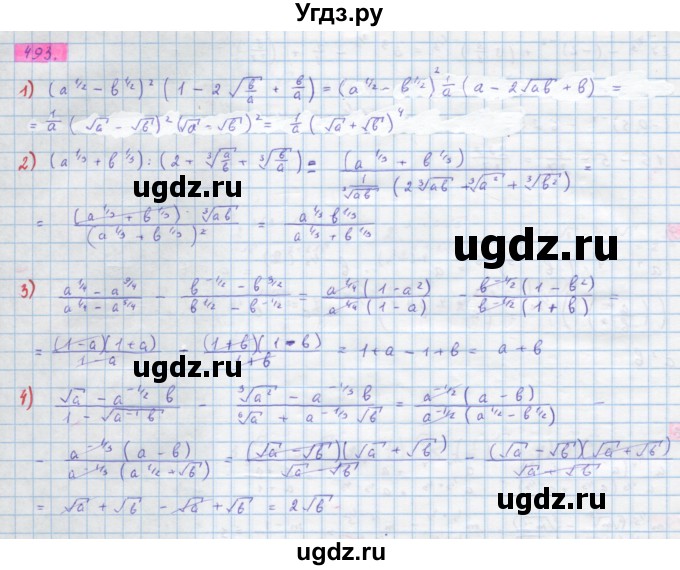 Угдз.ру
493.
1) (a^{1/2} - b^{1/2})^2 (1 - 2√(b/a) + b/a) = (a^{1/2} - b^{1/2})^2 1/a (a - 2√ab + b) =
= 1/a (√a - √b)^2 (√a - √b)^2 = 1/a (√a + √b)^4
2) (a^{1/3} + b^{1/3}) : (2 + ∛(a/b) + ∛(b/a)) = (a^{1/3} + b^{1/3}) / (1/∛ab (2∛ab + ∛a^2 + ∛b^2)) =
= (a^{1/3} + b^{1/3}) ∛ab / (a^{1/3} + b^{1/3})^2 = a^{1/3} b^{1/3} / (a^{1/3} + b^{1/3})
ugdz.ru
3) (a^{1/4} - a^{9/4}) / (a^{1/4} - a^{5/4}) - (b^{-1/2} - b^{3/2}) / (b^{1/2} - b^{-1/2}) = a^{1/4}(1 - a^2) / a^{1/4}(1 - a) - b^{-1/2}(1 - b^2) / b^{-1/2}(1 + b) =
= (1-a)(1+a) / (1-a) - (1+b)(1-b) / (1+b) = 1 + a - 1 + b = a + b
4) (√a - a^{-1/2} b) / (1 - √(a^{-1} b)) - (∛a^2 - a^{-1/3} b) / (⁶√a + a^{-1/3} √b) = a^{-1/2}(a - b) / a^{-1/2}(a^{1/2} - b^{1/2}) -
- a^{-1/3}(a - b) / a^{-1/3}(a^{1/2} + √b) = (√a - √b)(√a + √b) / (√a - √b) - (√a - √b)(√a + √b) / (√a + √b) =
= √a + √b - √a + √b = 2√b
ugdz.ru
ugdz.ru
ugdz.ru
ugdz.ru
ugdz.ru